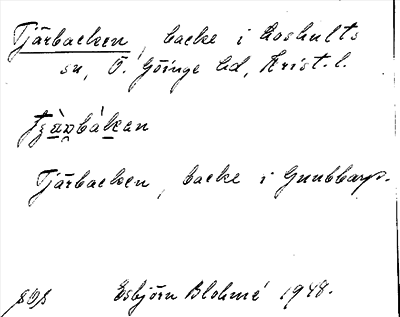 Tjärbacken, backe i Loshults
sn, Ö. Göinge hd, Krist. l.
Tjärbacken, backe i Gnubbarp.
Esbjörn Blohmé 1948.